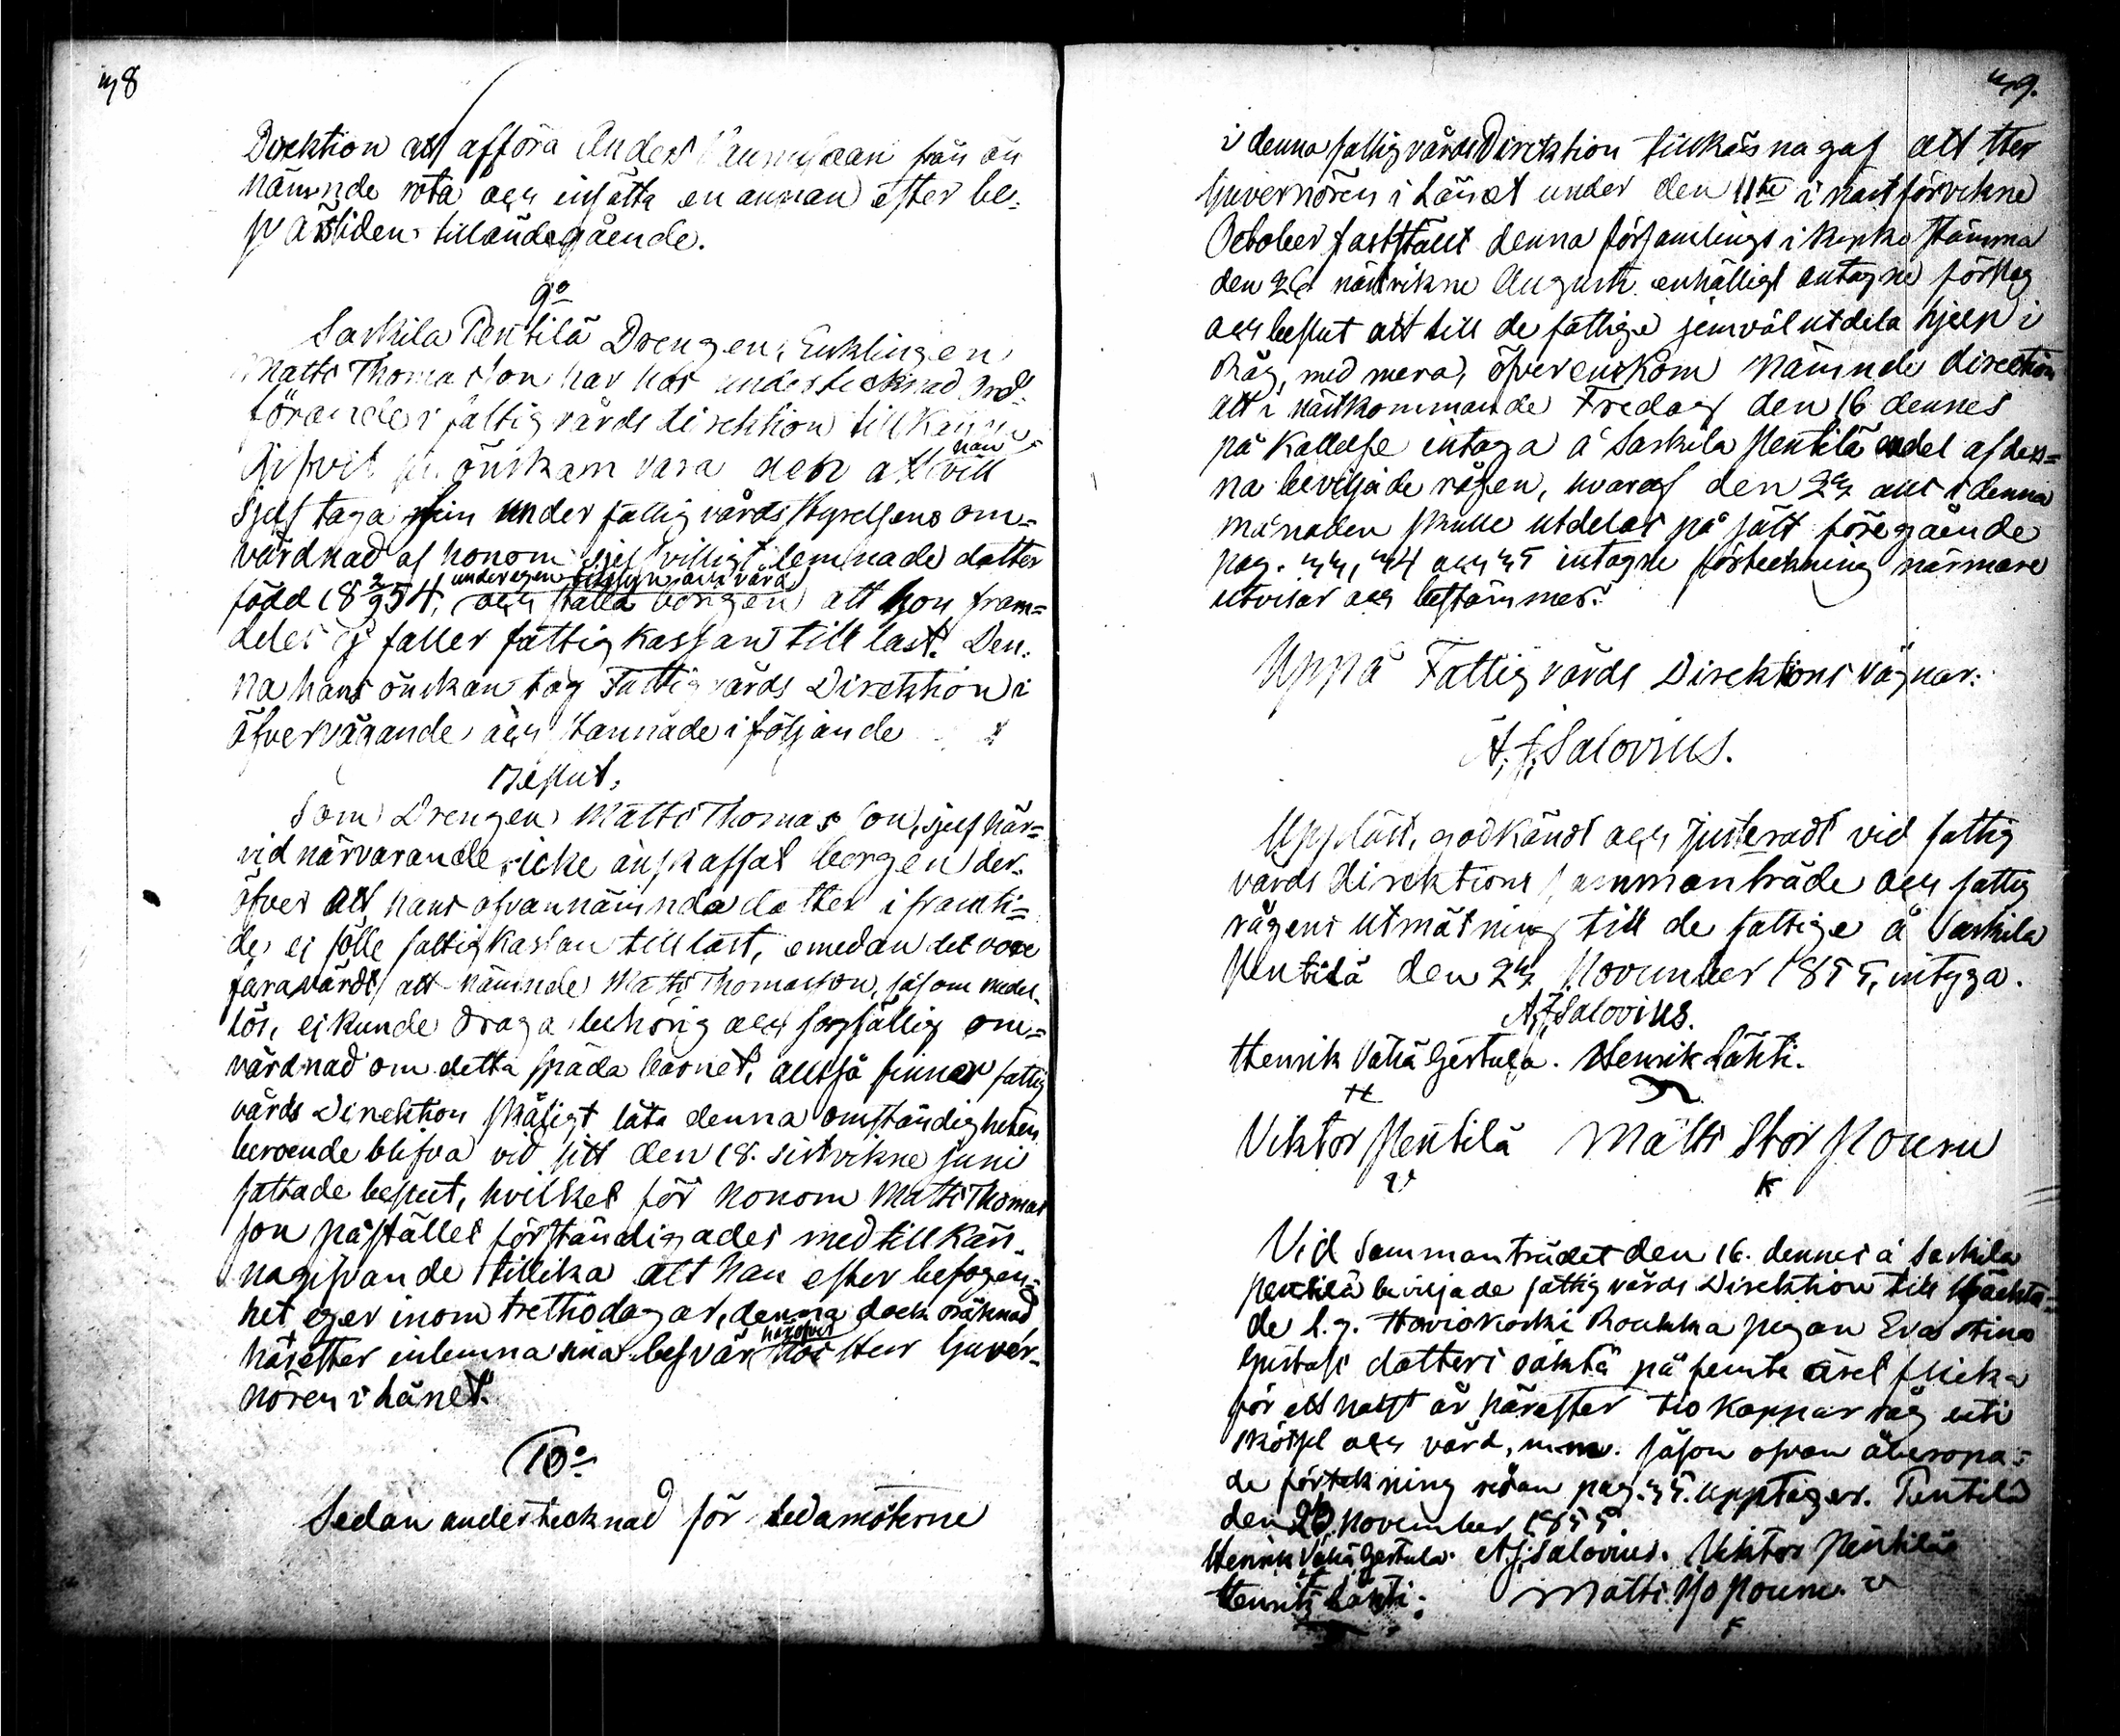 38
Direktion att afföra Anders från än
nämnde rota och insätta en annan efter be-
 årstiden tilländagående.
9o
Saskila Pentilä Drengen, Enklingen
Matts Thomasson har hos undertecknad Ord-
förande i fattigvårds direktion tillkänna
gifvit sin önskan vara den att han vill
sjelf taga sin under fattigvårds Styrelsens om-
vårdnad af honom sjelfvilligt lemnade dotter
född 18 2/9 54, under egen tillsyn och vård och ställa borgen att hon fram-
deles ej faller fattigkassan till last. Den-
na hans önskan tog Fattigvårds Direktion i
öfvervägande och stannade i följande
Beslut,
Som Drengen Matts Thomasson, sjelf här-
vid närvarande, icke anskaffat borgen der-
öfver att hans ofvannämnda dotter i framti-
de ej fölle fattigkassan till last, emedan det vore
fara värdt att nämnde Matts Thomasson, såsom medel-
lös, ej kunde draga behörig och sorgfällig om-
vårdnad om detta späda barnet, alltså finner fattig
vårds Direktion skäligt låta denna omständigheten
beroende blifva vid sitt den 18. sistvikne Juni
fattade beslut, hvilket för honom Matts Thomas
son på stället förständigades med tillkän-
nagifvande tillika att han efter befogen-
het eger inom trettio dagar, denna dock oräknad
härefter inlemna sina besvär häröfver hos Herr Guver-
nören i Länet.
10o
Sedan undertecknad för ledamöterne
39.
i denna fattigvårds Direktion tillkännagaf att Herr
Guvernören i Länet under den 11te i näst förvikne
October fastställt denna församlings i kyrko stämma
den 26 nästvikne Augusti enhälligt antagne förslag
och beslut att till de fattige jemväl utdela hjelp i
Råg, med mera, öfverenskom nämnde direction
att i nästkommande Fredag den 16 dennes
på Kallelse intaga å Saskila Pentilä en del af den-
na beviljade rågen, hvaraf den 23 allt i denna
månaden skulle utdelas på sätt föregående
pag. 33, 34 och 35 intagne förteckning närmare
utvisar och bestämmer.
Uppå Fattigvårds Direktions vägnar:
A. F. Salovius.
Uppläst, godkändt och justeradt vid fattig
vårds direktions sammanträde och fattig
rågens utmätning till de fattige å Saskila
Pentilä den 23 November 1855, intyga.
A. F. Salovius.
Henrik Vähä Gertula. Henrik Lähti.
H
Viktor Pentilä Matts Stor Pouru
V K
Vid Sammanträdet den 16. dennes å Saskila
Pentilä beviljade fattigvårds Direktion till
de l. g. Haviokoski Roukka pigan Eva Stina
Gustafs dotters oäkta på femte året flicka
för ett halft år härefter tio kappar råg uti
skötsel och vård, m. m. såsom ofvan åberopa-
de förtekning sidan pag. 35. upptager. Pentilä
den 23 November 1855
Henrik Vähä Gertula. A. F. Salovius. Viktor Pentilä
Henrik Lähti. Matts Pouru. V
K